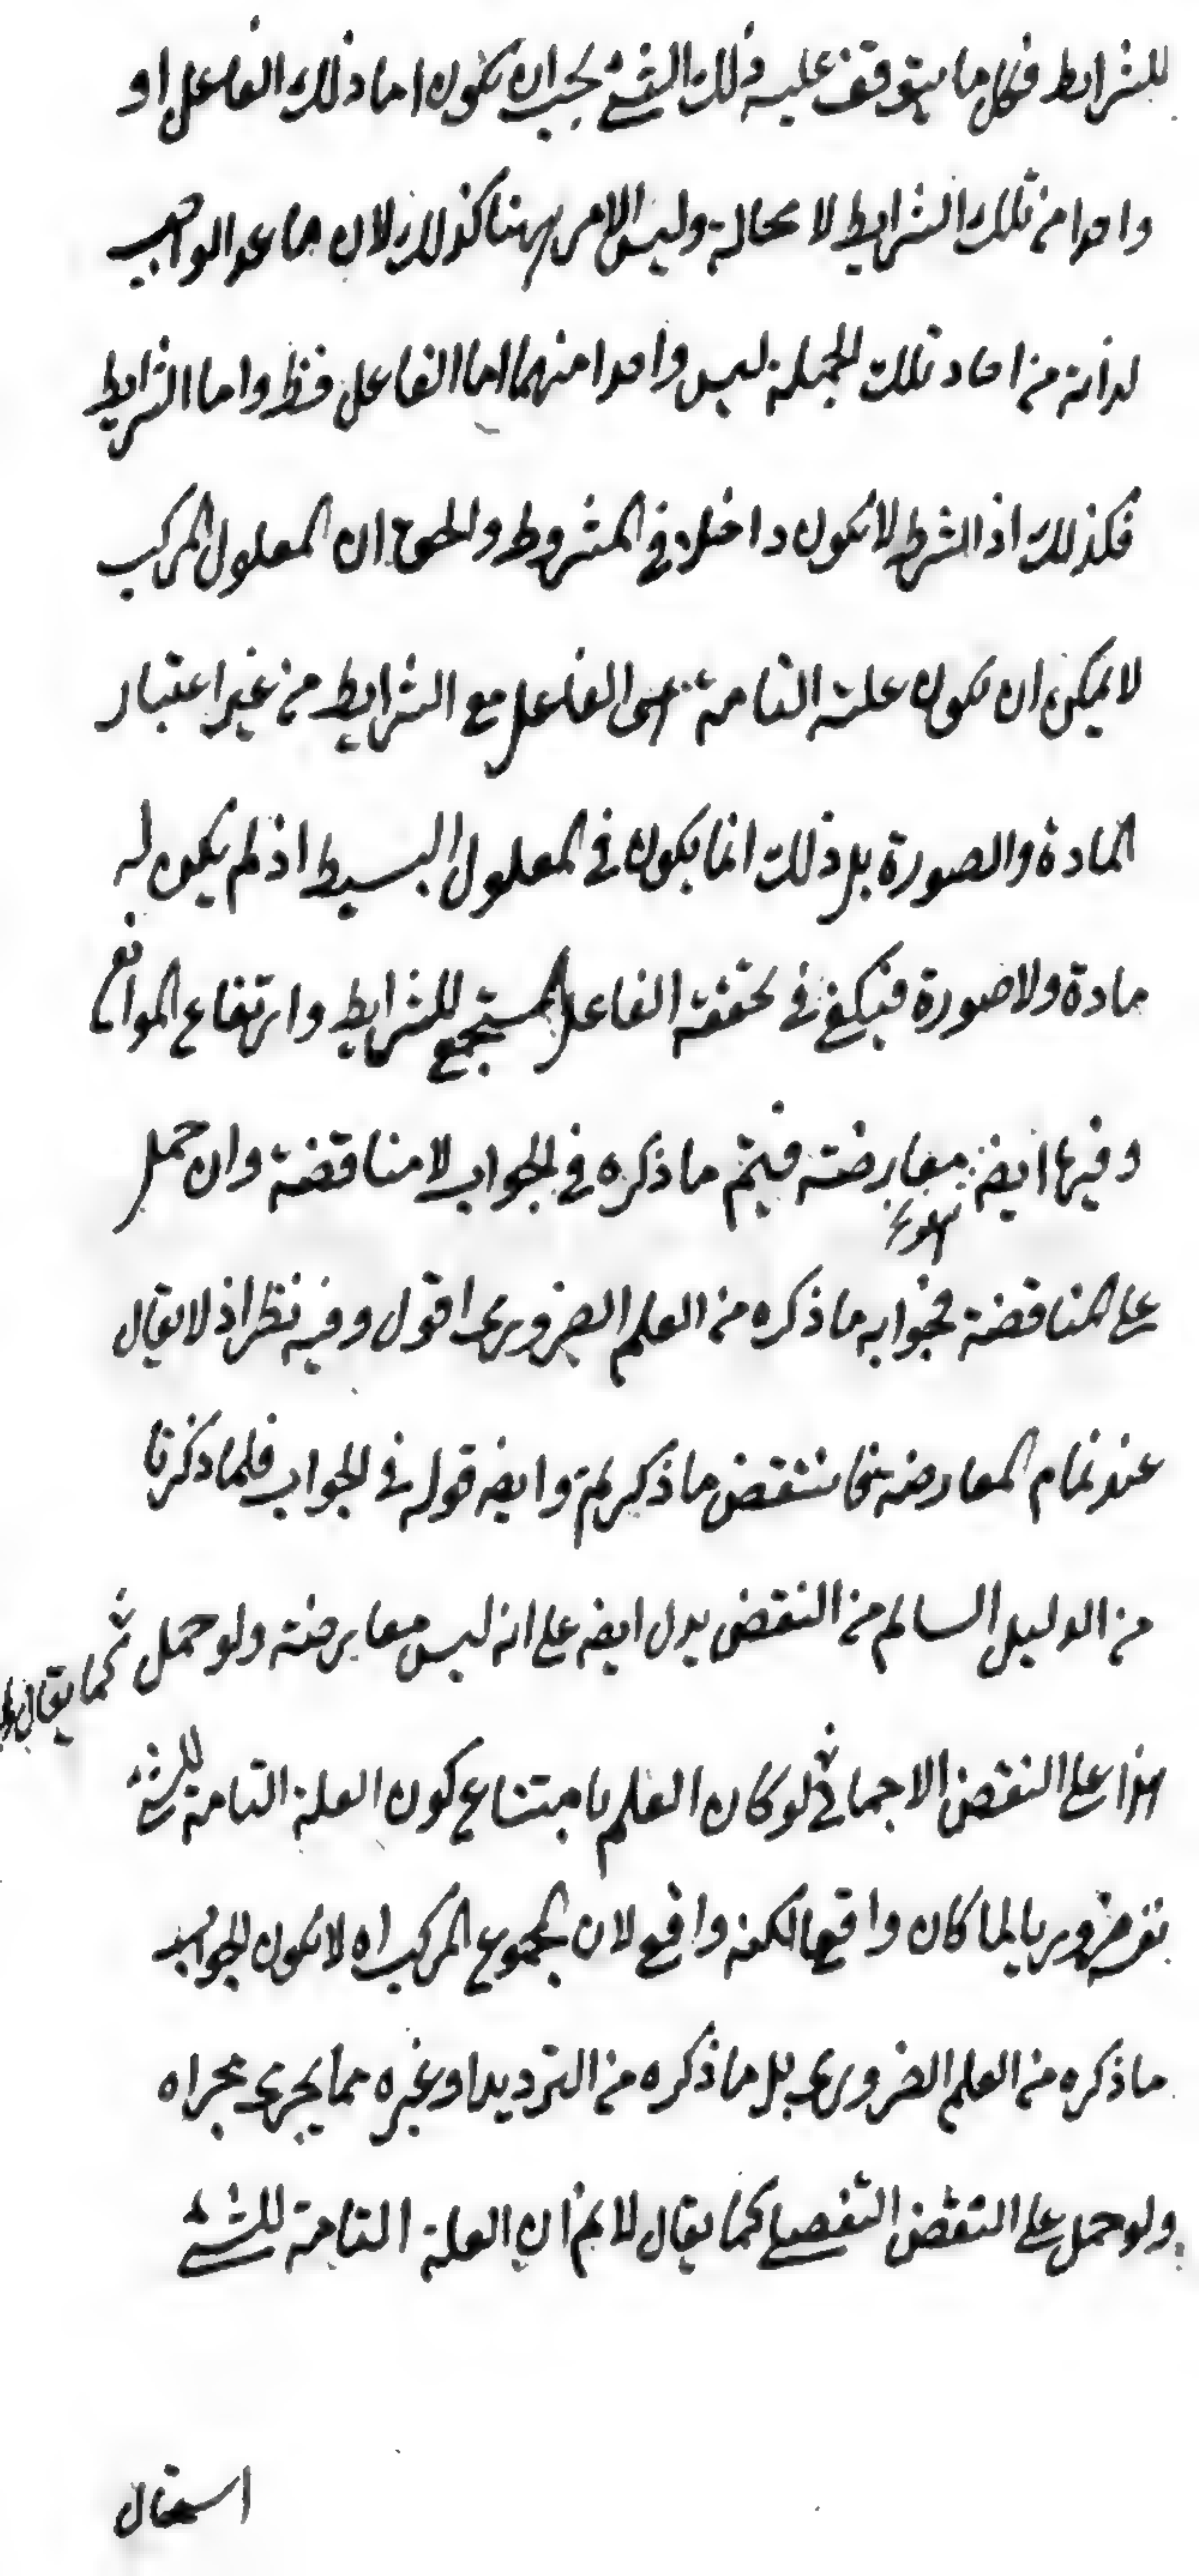 للشرايط فكل ما يتوقف عليه ذلك الشئ يجب ان يكون اما ذلك الفاعل او
واحدا من تلك الشرايط لا محالة وليس الامر ههنا كذلك لان ما عدا الواجب
لذاته من احاد تلك الجملة ليس واحدا منهما اما الفاعل فظ واما الشرايط
فكذلك اذ الشرط لا يكون داخلا في المشروط والحق ان المعلول المركب
لا يمكن ان يكون علته التامة هى الفاعل مع الشرايط من غير اعتبار
المادة والصورة بل ذلك انما يكون في المعلول البسيط اذ لم يكن له
مادة ولا صورة فيكفي في تحققه الفاعل المستجمع للشرايط وارتفاع الموانع
وفيها ايضه معارضته فيتم ما ذكره في الجواب لا مناقضة وان حمل
على المناقضة فجوابه ما ذكره من العلم الضرورى اقول وفيه نظر اذ لا يقال
عند تمام المعارضه فانتقض ما ذكرتم وايضه قوله في الجواب فلما ذكرنا
من الدليل السالم من النقض يدل ايضه على انه ليس معارضته ولو حمل
كما يقال
هذا على النقض الاجمالى لو كان العلم بامتناع كون العلة التامة للشئ
ضروريا لما كان واقعا لكنه واقع لان مجموع المركب اه لا يكون الجواب
ما ذكره من العلم الضرورى بل ما ذكره من الترديد او غيره مما يجرى مجراه
ولو حمل على النقض التفصيلى كما يقال لا نم ان العلة التامة للشئ
استقال